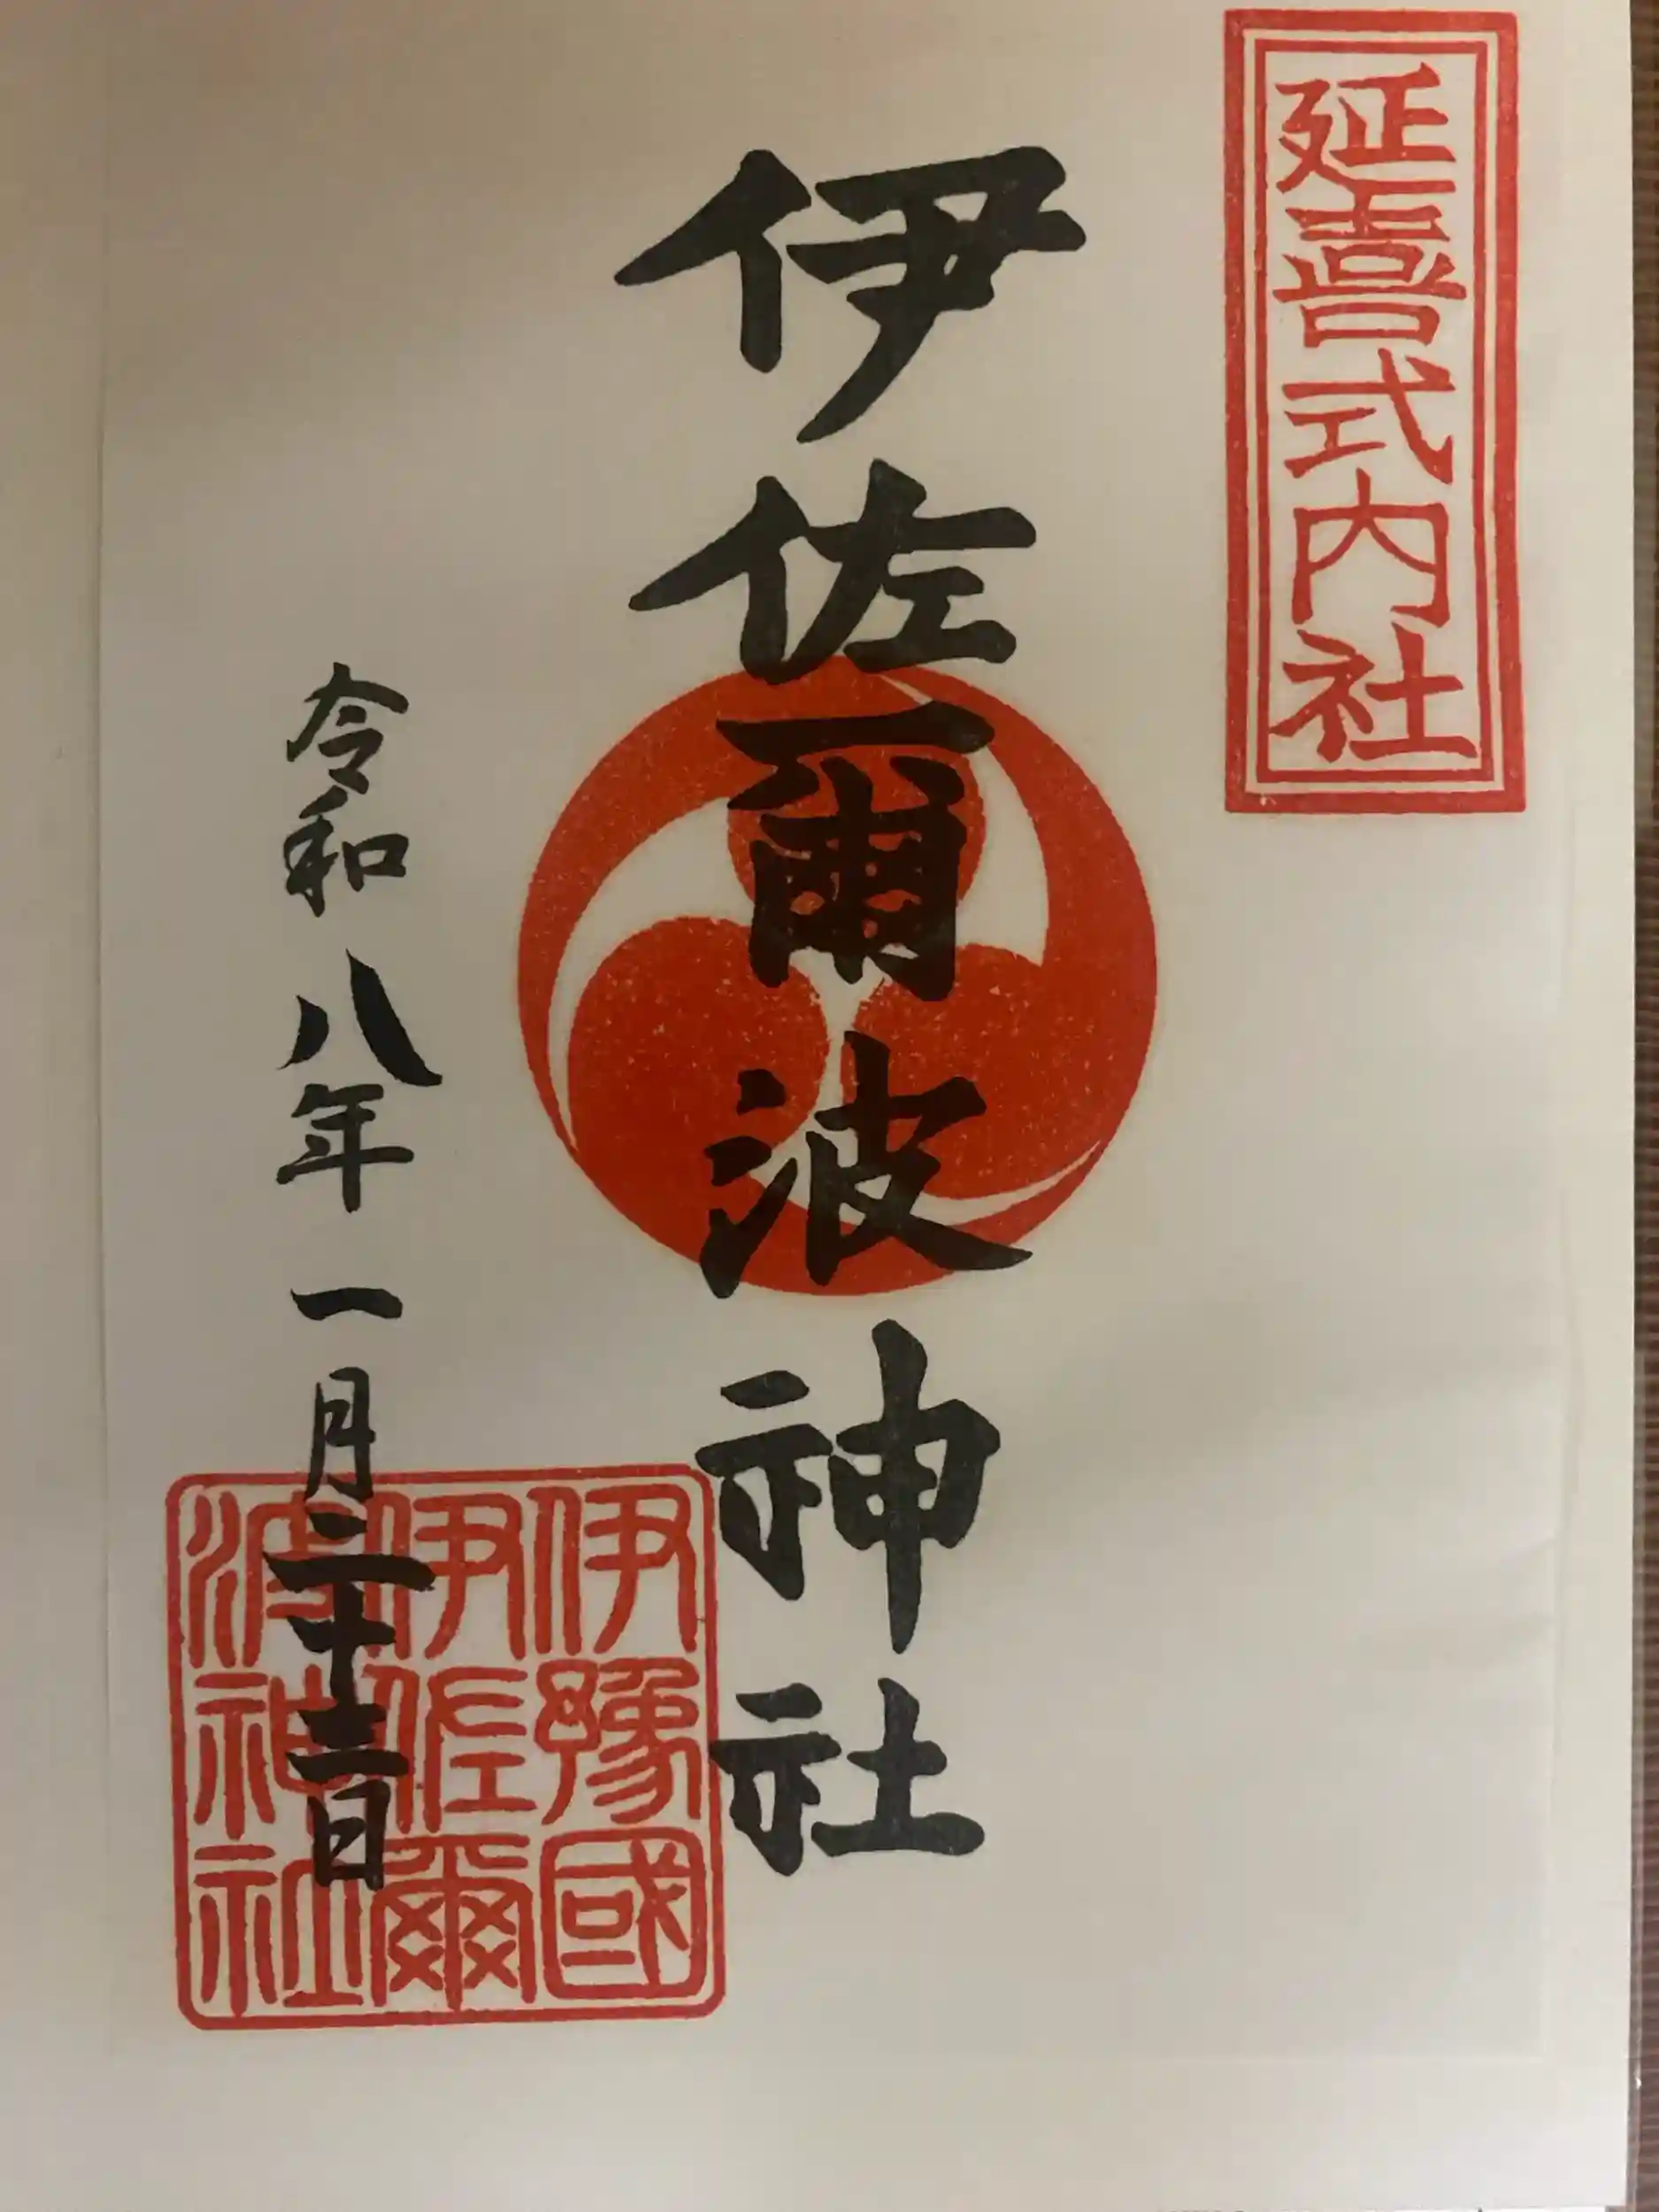 延喜式内社
伊佐爾波神社
令和八年一月二十三日
伊豫國
伊佐爾
波神社